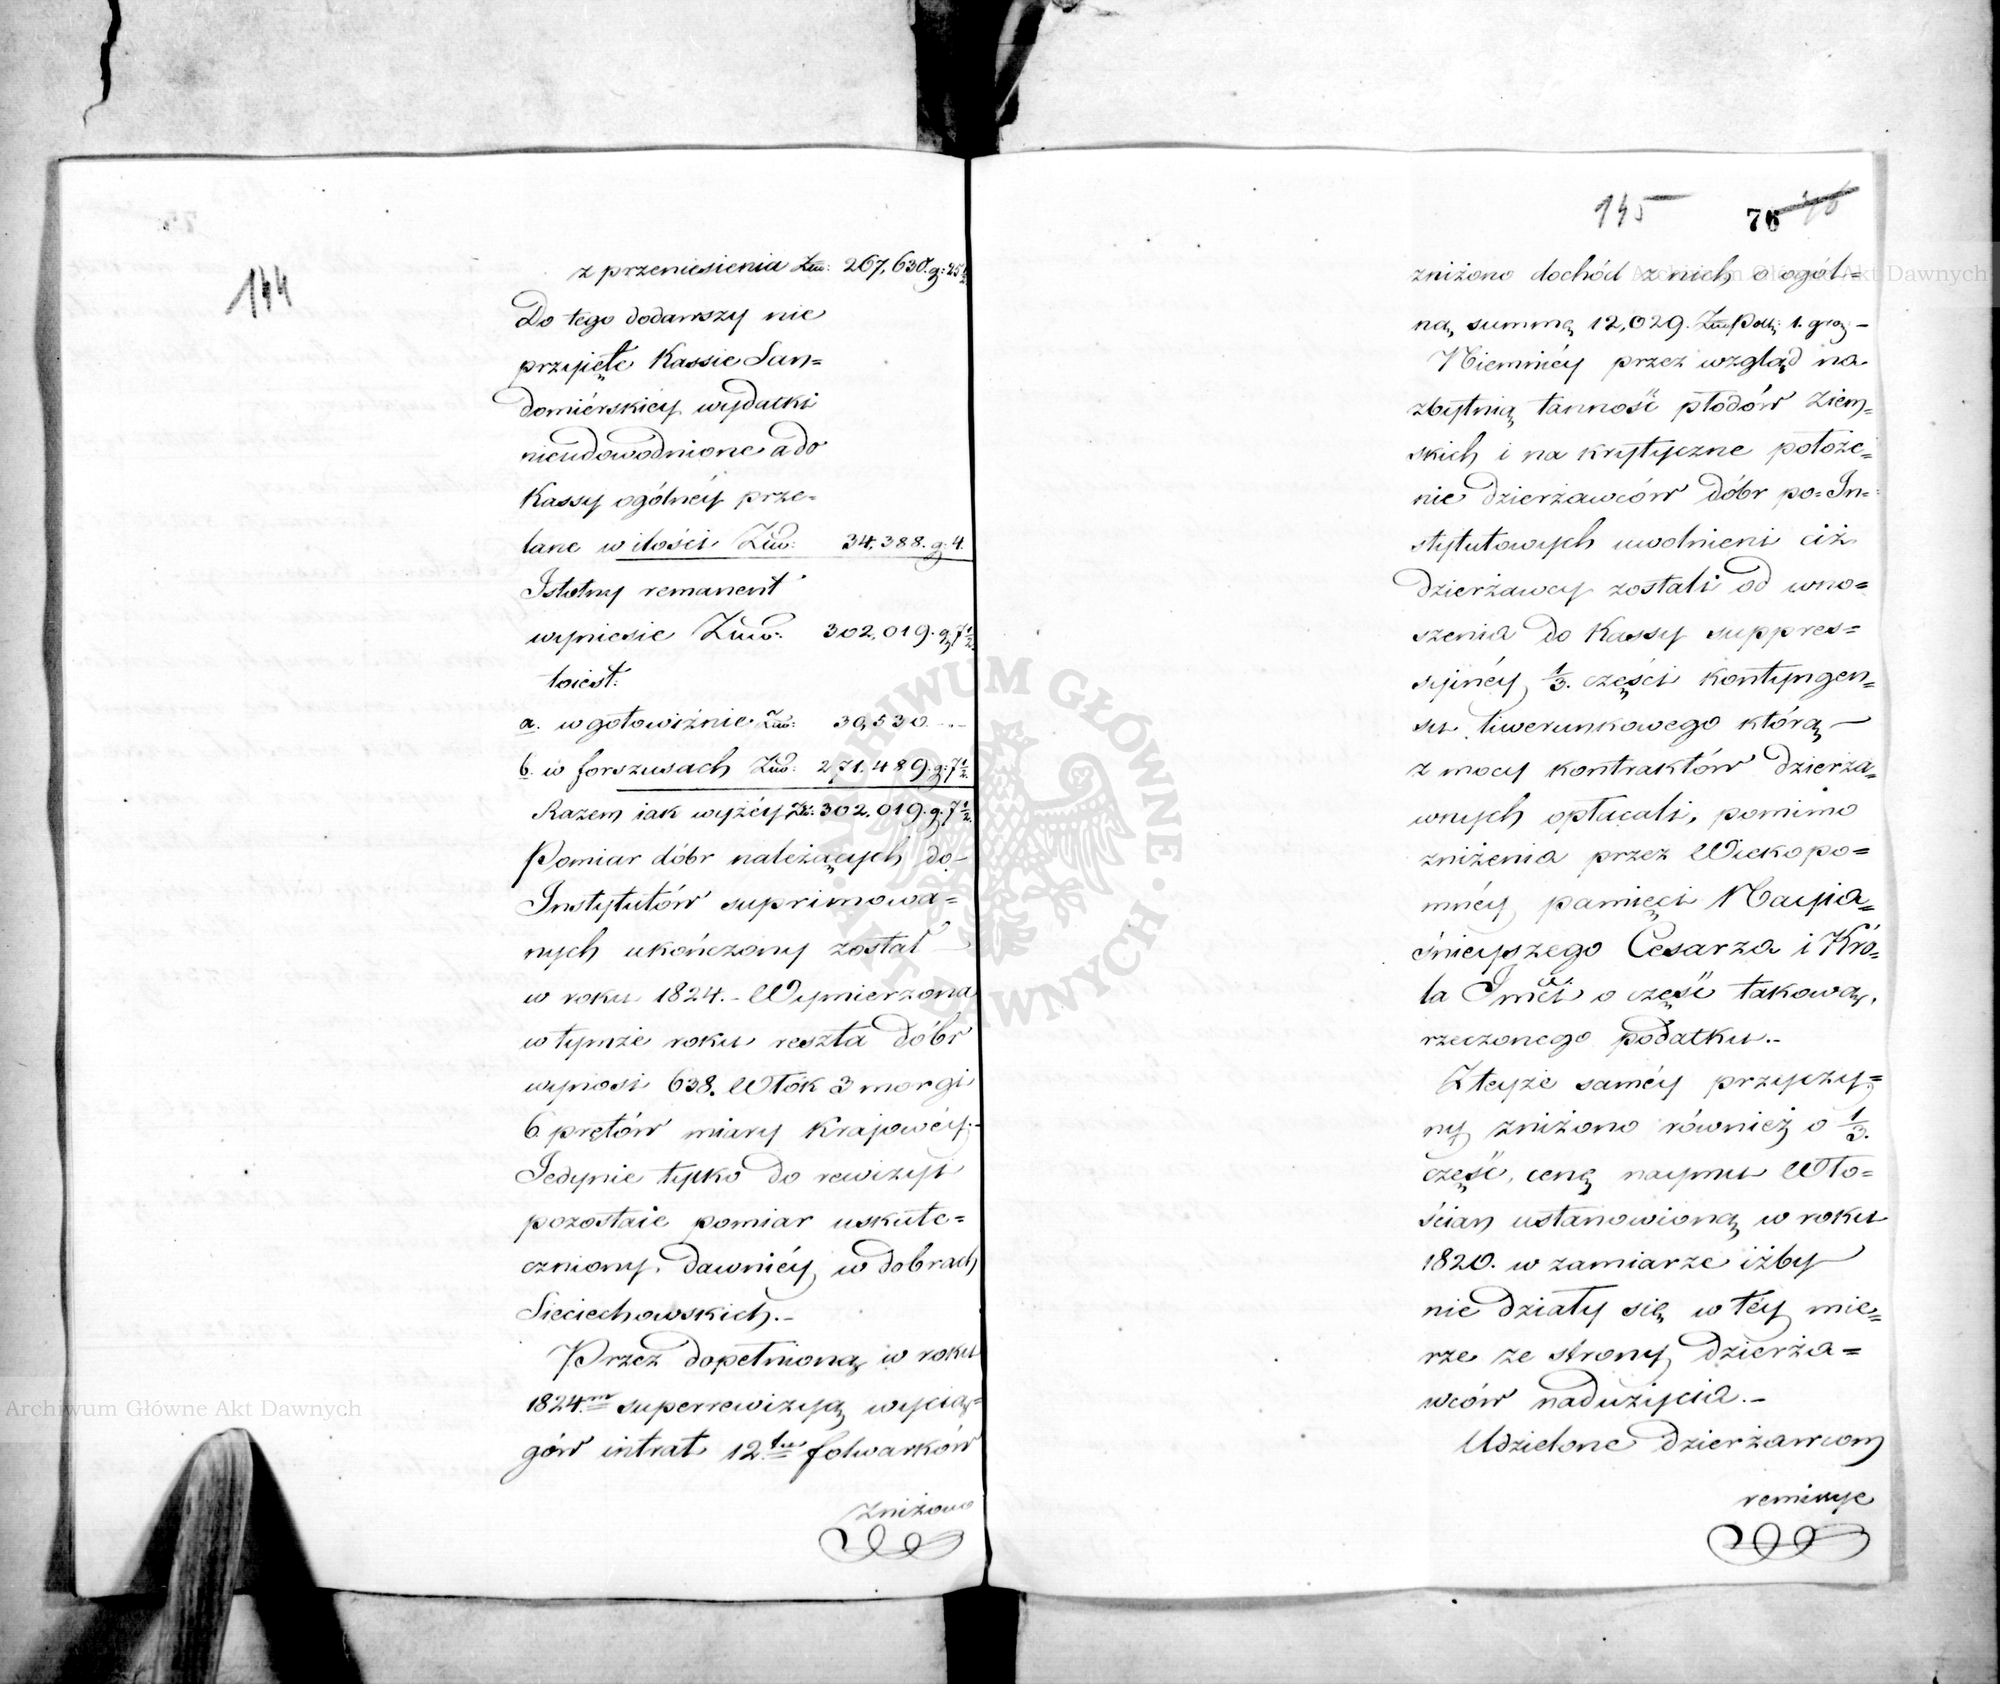 144
z przeniesienia Złw: 267,630. g: 25½
Do tego dodawszy nie
przyięte Kassie San=
domiérskiey wydatki
nieudowodnione a do
Kassy ogólnéy prze=
lane w ilości Złw: 34,388. g: 4.
Istotny remanent
wyniesie Złw: 302,019. g. 7½.
toiest:
a. w gotowiźnie Złw: 30,530. —.—
b. w forszusach Złw: 271,489. g: 7½.
Razem iak wyżéy Zł: 302,019. g. 7½.
Pomiar dóbr należących do
Instytutów suprimowa=
nych ukończony został —
w roku 1824. – Wymierzona
w tymże roku reszta dóbr
wynosi 638. Włók 3 morgi
6 prętów miary Krajowéy. –
Jedynie tylko do rewizyi
pozostaie pomiar uskute=
czniony, dawniéy w dobrach
Sieciechowskich. –
Przez dopełnioną w roku
1824.m superrewizyą wycią=
gów intrat 12.tu folwarków
zniżono
145 76
zniżono dochód z nich o ogól=
ną summę 12,029. Złtpols: 1. gro. –
Niemniéy przez wzgląd na
zbytnią tanność płodów Ziem=
skich i na krytyczne położe=
nie dzierżawców dóbr po=In=
stytutowych uwolnieni ciż
dzierżawcy zostali od wno=
szenia do Kassy suppres=
syinéy ⅓. części kontyngen=
su liwerunkowego którą —
z mocy kontraktów dzierża=
wnych opłacali, pomimo
zniżenia przez Wiekopo=
mnéy pamięci Nayia=
śnieyszego Cesarza i Kró=
la Jmci o część takową,
rzeczonego podatku. –
Z teyże saméy przyczy=
ny zniżono również o ⅓.
część, cenę naymu Wło=
ścian ustanowioną w roku
1820. w zamiarze iżby
nie działy się w téy mie=
rze ze strony dzierża=
wców nadużycia. –
Udzielone dzierżawcom
remissye
Archiwum Główne Akt Dawnych
Archiwum Główne Akt Dawnych
ARCHIWUM GŁÓWNE AKT DAWNYCH